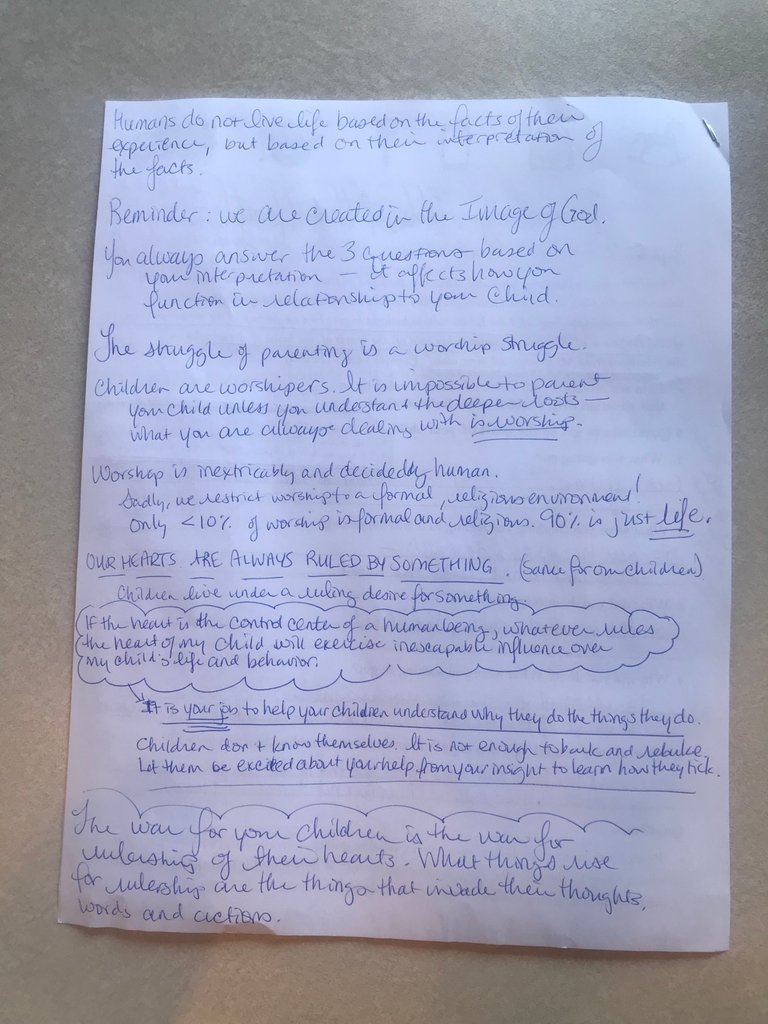 Humans do not live life based on the facts of their
experience, but based on their interpretation of
the facts.
Reminder: we are created in the Image of God.
You always answer the 3 questions based on
your interpretation — it affects how you
function in relationship to your child.
The struggle of parenting is a worship struggle.
Children are worshipers. It is impossible to parent
your child unless you understand the deeper roots —
what you are always dealing with is worship.
Worship is inextricably and decidedly human.
Sadly, we restrict worship to a formal, religious environment!
Only <10% of worship is formal and religious. 90% is just life.
OUR HEARTS ARE ALWAYS RULED BY SOMETHING. (same for our children)
Children live under a ruling desire for something.
If the heart is the control center of a human being, whatever rules
the heart of my child will exercise inescapable influence over
my child's life and behavior.
It is your job to help your children understand why they do the things they do.
Children don't know themselves. It is not enough to bark and rebuke.
Let them be excited about your help from your insight to learn how they tick.
The war for your children is the war for
rulership of their hearts. What things
for rulership are the things that invade their thoughts,
words and actions.